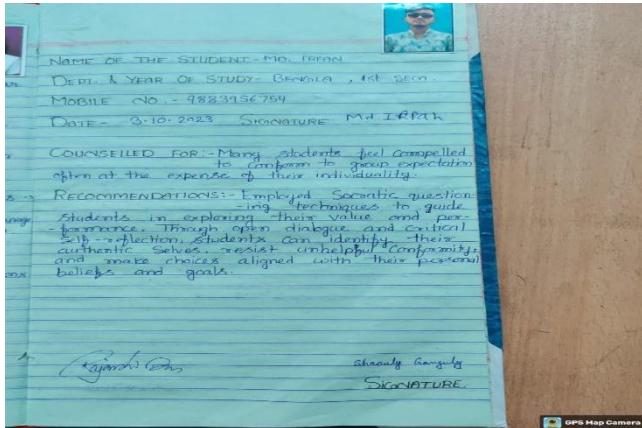 NAME OF THE STUDENT - MD. IRFAN
DEPT. & YEAR OF STUDY - BENGLA, 1st SEM.
MOBILE NO. - 9883956754
DATE - 3-10-2023 SIGNATURE Md IRPAN
COUNSELLED FOR:- Many students feel compelled
to conform to group expectation
often at the expense of their individuality.
RECOMMENDATIONS:- Employed Socratic question-
-ing techniques to guide
students in exploring their value and per-
-formance. Through open dialogue and critical
self-reflection, students can identify their
authentic selves, resist unhelpful conformity,
and make choices aligned with their personal
beliefs and goals.
Shaouly Ganguly
SIGNATURE
GPS Map Camera